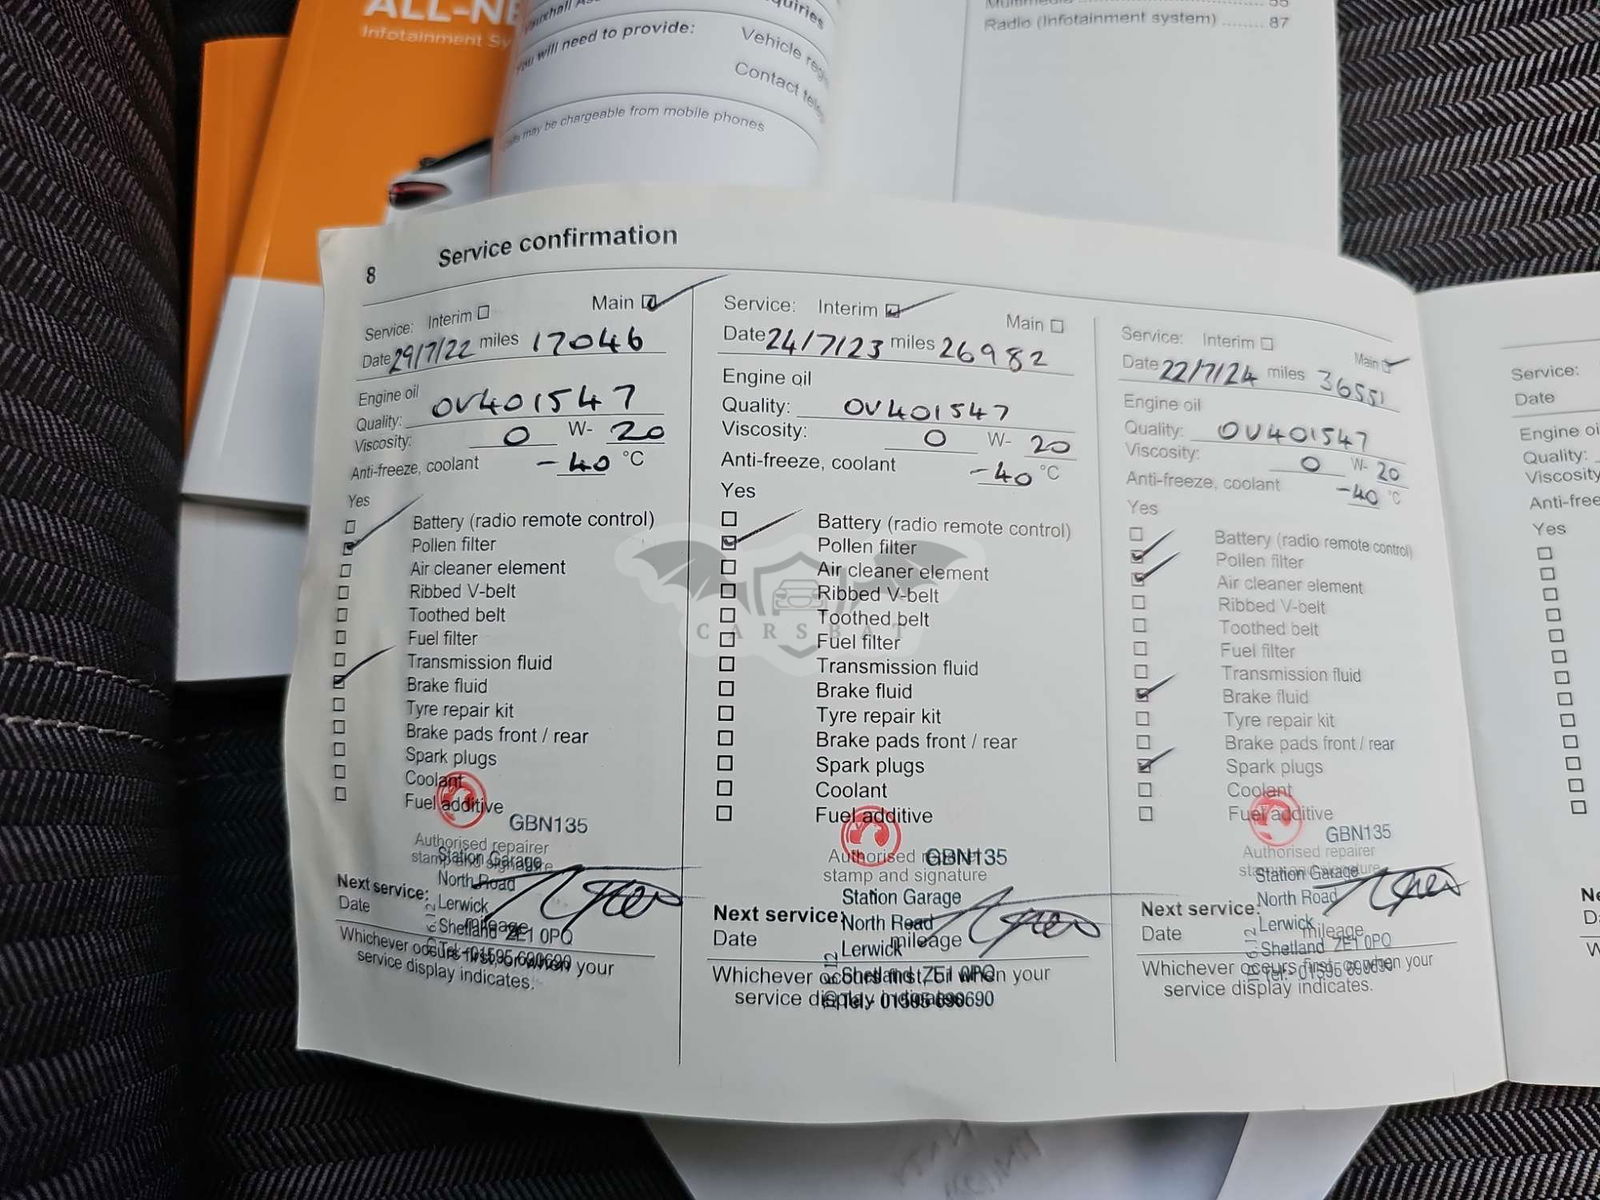 ALL-NE
Infotainment Sy
You will need to provide:
Vehicle reg
Contact tele
may be chargeable from mobile phones
Radio (Infotainment system) ........ 87
8 Service confirmation
Service: Interim Main
Date 29/7/22 miles 17046
Engine oil
Quality: OV401547
Viscosity: 0 W- 20
Anti-freeze, coolant -40 °C
Yes
Battery (radio remote control)
Pollen filter
Air cleaner element
Ribbed V-belt
Toothed belt
Fuel filter
Transmission fluid
Brake fluid
Tyre repair kit
Brake pads front / rear
Spark plugs
Coolant
Fuel additive
GBN135
Authorised repairer
stamp and signature
Station Garage
North Road
Next service:
Lerwick
Date mileage
Shetland ZE1 0PQ
Tel: 01595 690690
Whichever occurs first, or when your
service display indicates.
Service: Interim Main
Date 24/7/23 miles 26982
Engine oil
Quality: OV401547
Viscosity: 0 W- 20
Anti-freeze, coolant -40 °C
Yes
Battery (radio remote control)
Pollen filter
Air cleaner element
Ribbed V-belt
Toothed belt
Fuel filter
Transmission fluid
Brake fluid
Tyre repair kit
Brake pads front / rear
Spark plugs
Coolant
Fuel additive
GBN135
Authorised repairer
stamp and signature
Station Garage
Next service:
North Road
Date mileage
Lerwick
Shetland ZE1 0PQ
Whichever occurs first, or when your
service display indicates.
Tel: 01595 690690
Service: Interim Main
Date 22/7/24 miles 36551
Engine oil
Quality: OV401547
Viscosity: 0 W- 20
Anti-freeze, coolant -40 °C
Yes
Battery (radio remote control)
Pollen filter
Air cleaner element
Ribbed V-belt
Toothed belt
Fuel filter
Transmission fluid
Brake fluid
Tyre repair kit
Brake pads front / rear
Spark plugs
Coolant
Fuel additive
GBN135
Authorised repairer
stamp and signature
Station Garage
North Road
Next service:
Lerwick
Date mileage
Shetland ZE1 0PQ
Tel: 01595 690690
Whichever occurs first, or when your
service display indicates.
Service:
Date
Engine oi
Quality:
Viscosity
Anti-free
Yes
CARSBAT